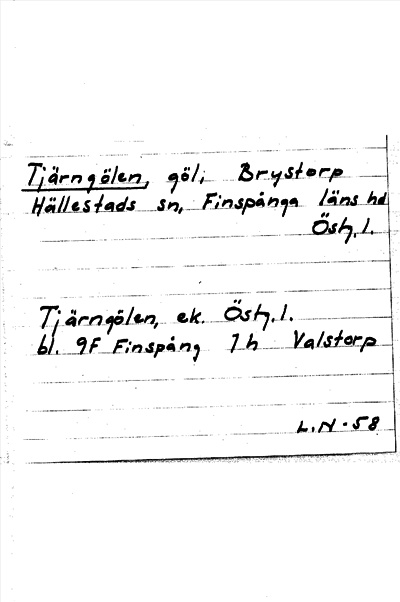 Tjärngölen, göl; Brystorp
Hällestads sn, Finspånga läns hd
Östg. l.
Tjärngölen, ek. Östg. l.
bl. 9F Finspång 7h Valstorp
L.N - 58